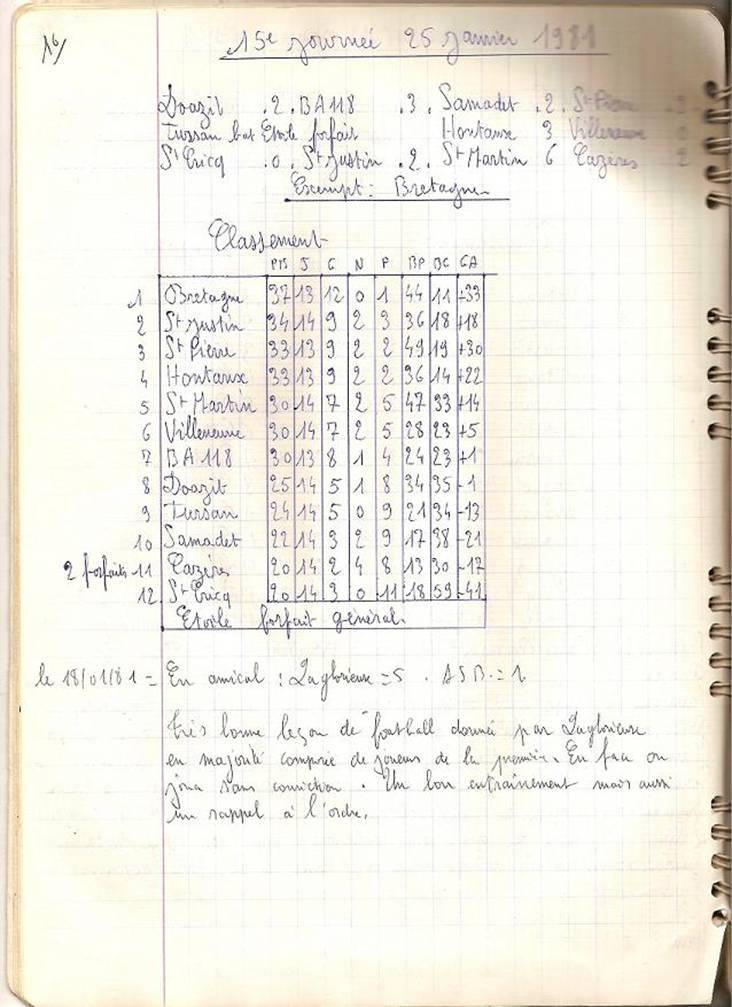 16/
15e journée 25 janvier 1981
Doazit .2. BA118 .3. Samadet .2. St Pierre 2
Tursan bat Etoile forfait Hontanx 3 Villeneuve 0
St Cricq .0. St Justin .2. St Martin 6 Cazères 2
Exempt : Bretagne
Classement
Pts J G N P BP BC GA
1 Bretagne 37 13 12 0 1 44 11 +33
2 St Justin 34 14 9 2 3 36 18 +18
3 St Pierre 33 13 9 2 2 49 19 +30
4 Hontanx 33 13 9 2 2 36 14 +22
5 St Martin 30 14 7 2 5 47 33 +14
6 Villeneuve 30 14 7 2 5 28 23 +5
7 BA 118 30 13 8 1 4 24 23 +1
8 Doazit 25 14 5 1 8 34 35 -1
9 Tursan 24 14 5 0 9 21 34 -13
10 Samadet 22 14 3 2 9 17 38 -21
2 forfaits 11 Cazères 20 14 2 4 8 13 30 -17
12 St Cricq 20 14 3 0 11 18 59 -41
Etoile forfait général.
le 18/01/81 = En amical : Laglorieuse = 5 . ASB. = 1
très bonne leçon de football donnée par Laglorieuse
en majorité composée de joueurs de la première. En face on
joua sans conviction. Un bon entraînement mais aussi
un rappel à l'ordre.